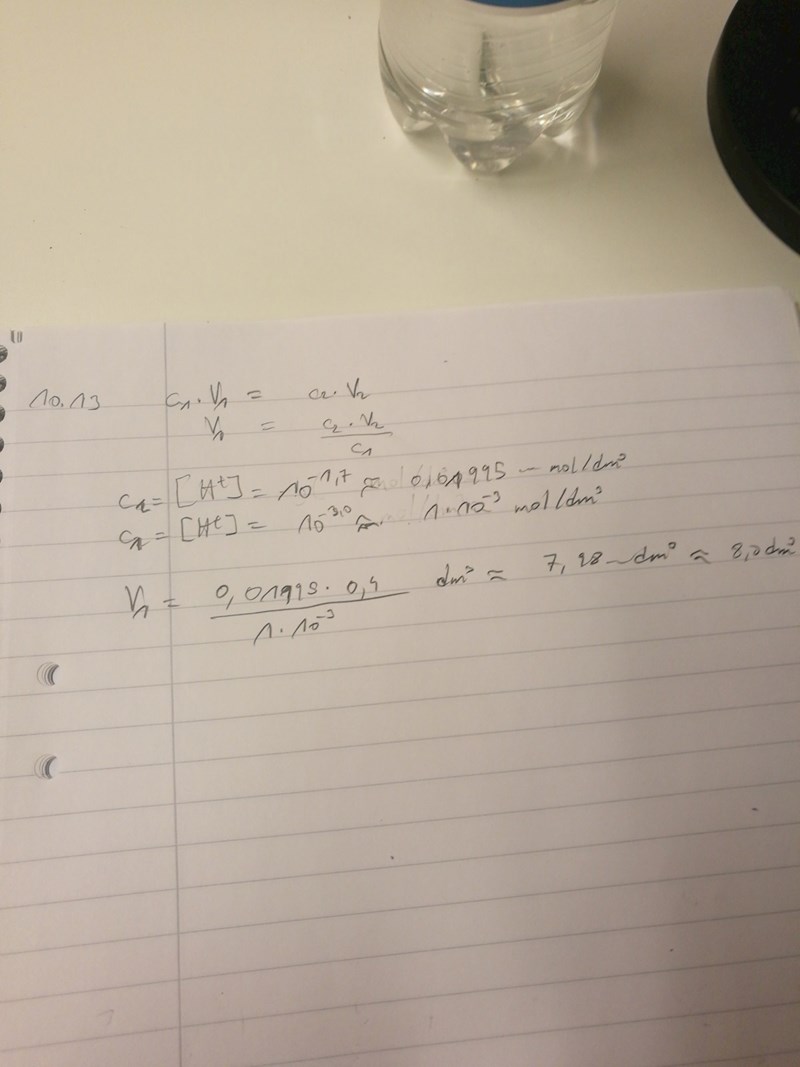 10.13 c₁·V₁ = c₂·V₂
V₁ = c₂·V₂ / c₁
c₂ = [H⁺] = 10⁻¹,⁷ ≈ 0,01995 – mol/dm³
c₁ = [H⁺] = 10⁻³,⁰ ≈ 1·10⁻³ mol/dm³
V₁ = 0,01995·0,4 / 1·10⁻³ dm³ ≈ 7,98 – dm³ ≈ 8,0 dm³